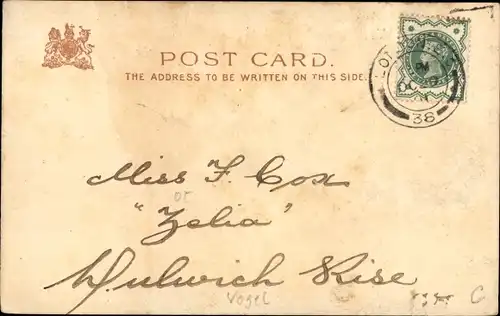 POST CARD.
THE ADDRESS TO BE WRITTEN ON THIS SIDE.
38
Miss F. Cox
"Zelia"
Dulwich Rise
Vogel